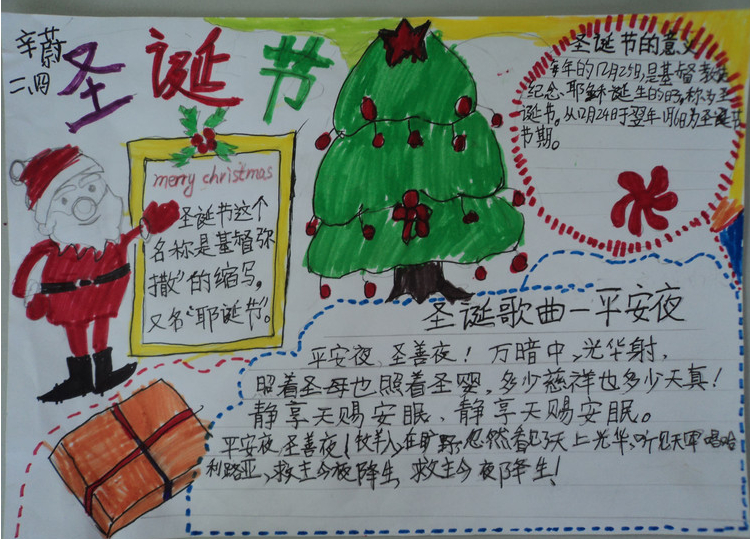 辛蔚
二、四
圣诞节
merry christmas
圣诞节这个
名称是基督弥
撒”的缩写，
又名“耶诞节”。
圣诞节的意义
每年的12月25日，是基督教徒
纪念耶稣诞生的日子，称为圣
诞节。从12月24日于翌年1月6日为圣诞节
节期。
圣诞歌曲—平安夜
平安夜、圣善夜！万暗中，光华射，
照着圣母也照着圣婴，多少慈祥也多少天真！
静享天赐安眠、静享天赐安眠。
平安夜，圣善夜！牧羊人，在旷野，忽然看见了天上光华，听见天军唱哈
利路亚，救主今夜降生，救主今夜降生！